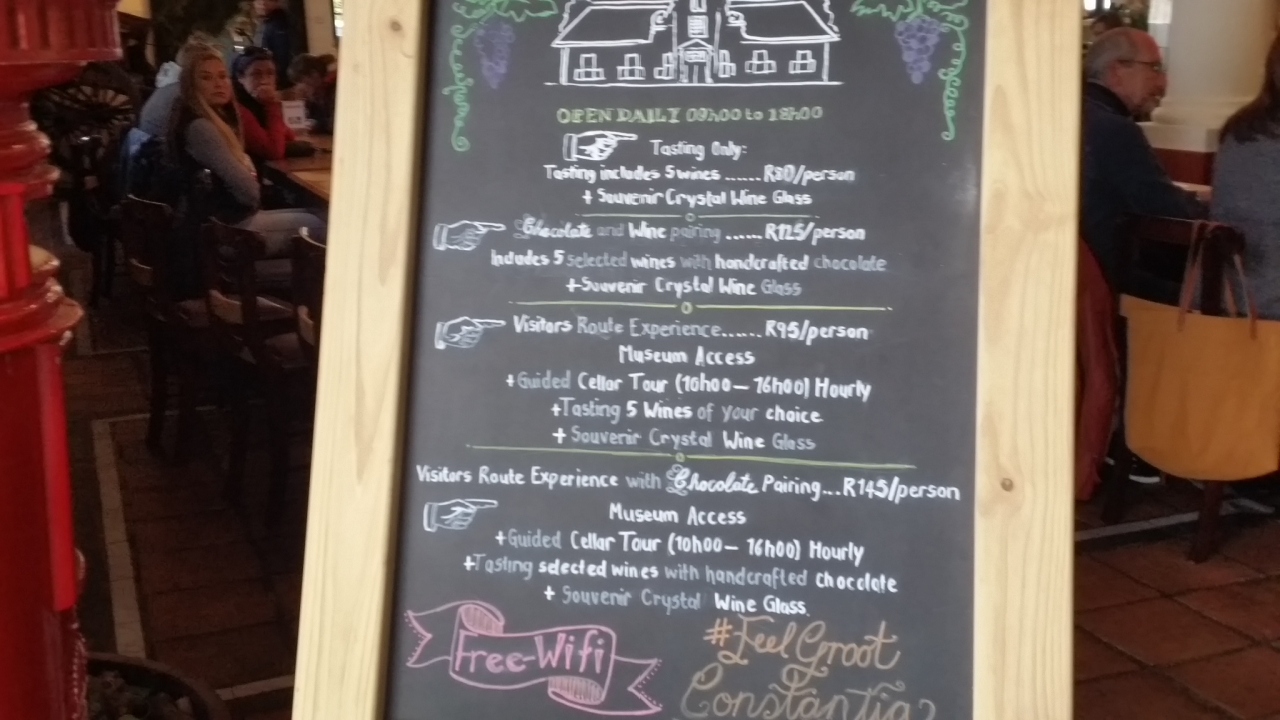 OPEN DAILY 09h00 to 18h00
Tasting Only:
Tasting includes 5 wines ...... R80/person
+ Souvenir Crystal Wine Glass
Chocolate and Wine pairing ...... R125/person
Includes 5 selected wines with handcrafted chocolate
+ Souvenir Crystal Wine Glass
Visitors Route Experience...... R95/person
Museum Access
+ Guided Cellar Tour (10h00 – 16h00) Hourly
+ Tasting 5 Wines of your choice
+ Souvenir Crystal Wine Glass
Visitors Route Experience with Chocolate Pairing...R145/person
Museum Access
+ Guided Cellar Tour (10h00 – 16h00) Hourly
+ Tasting selected wines with handcrafted chocolate
+ Souvenir Crystal Wine Glass
Free-Wifi
#Feel Groot
Constantia